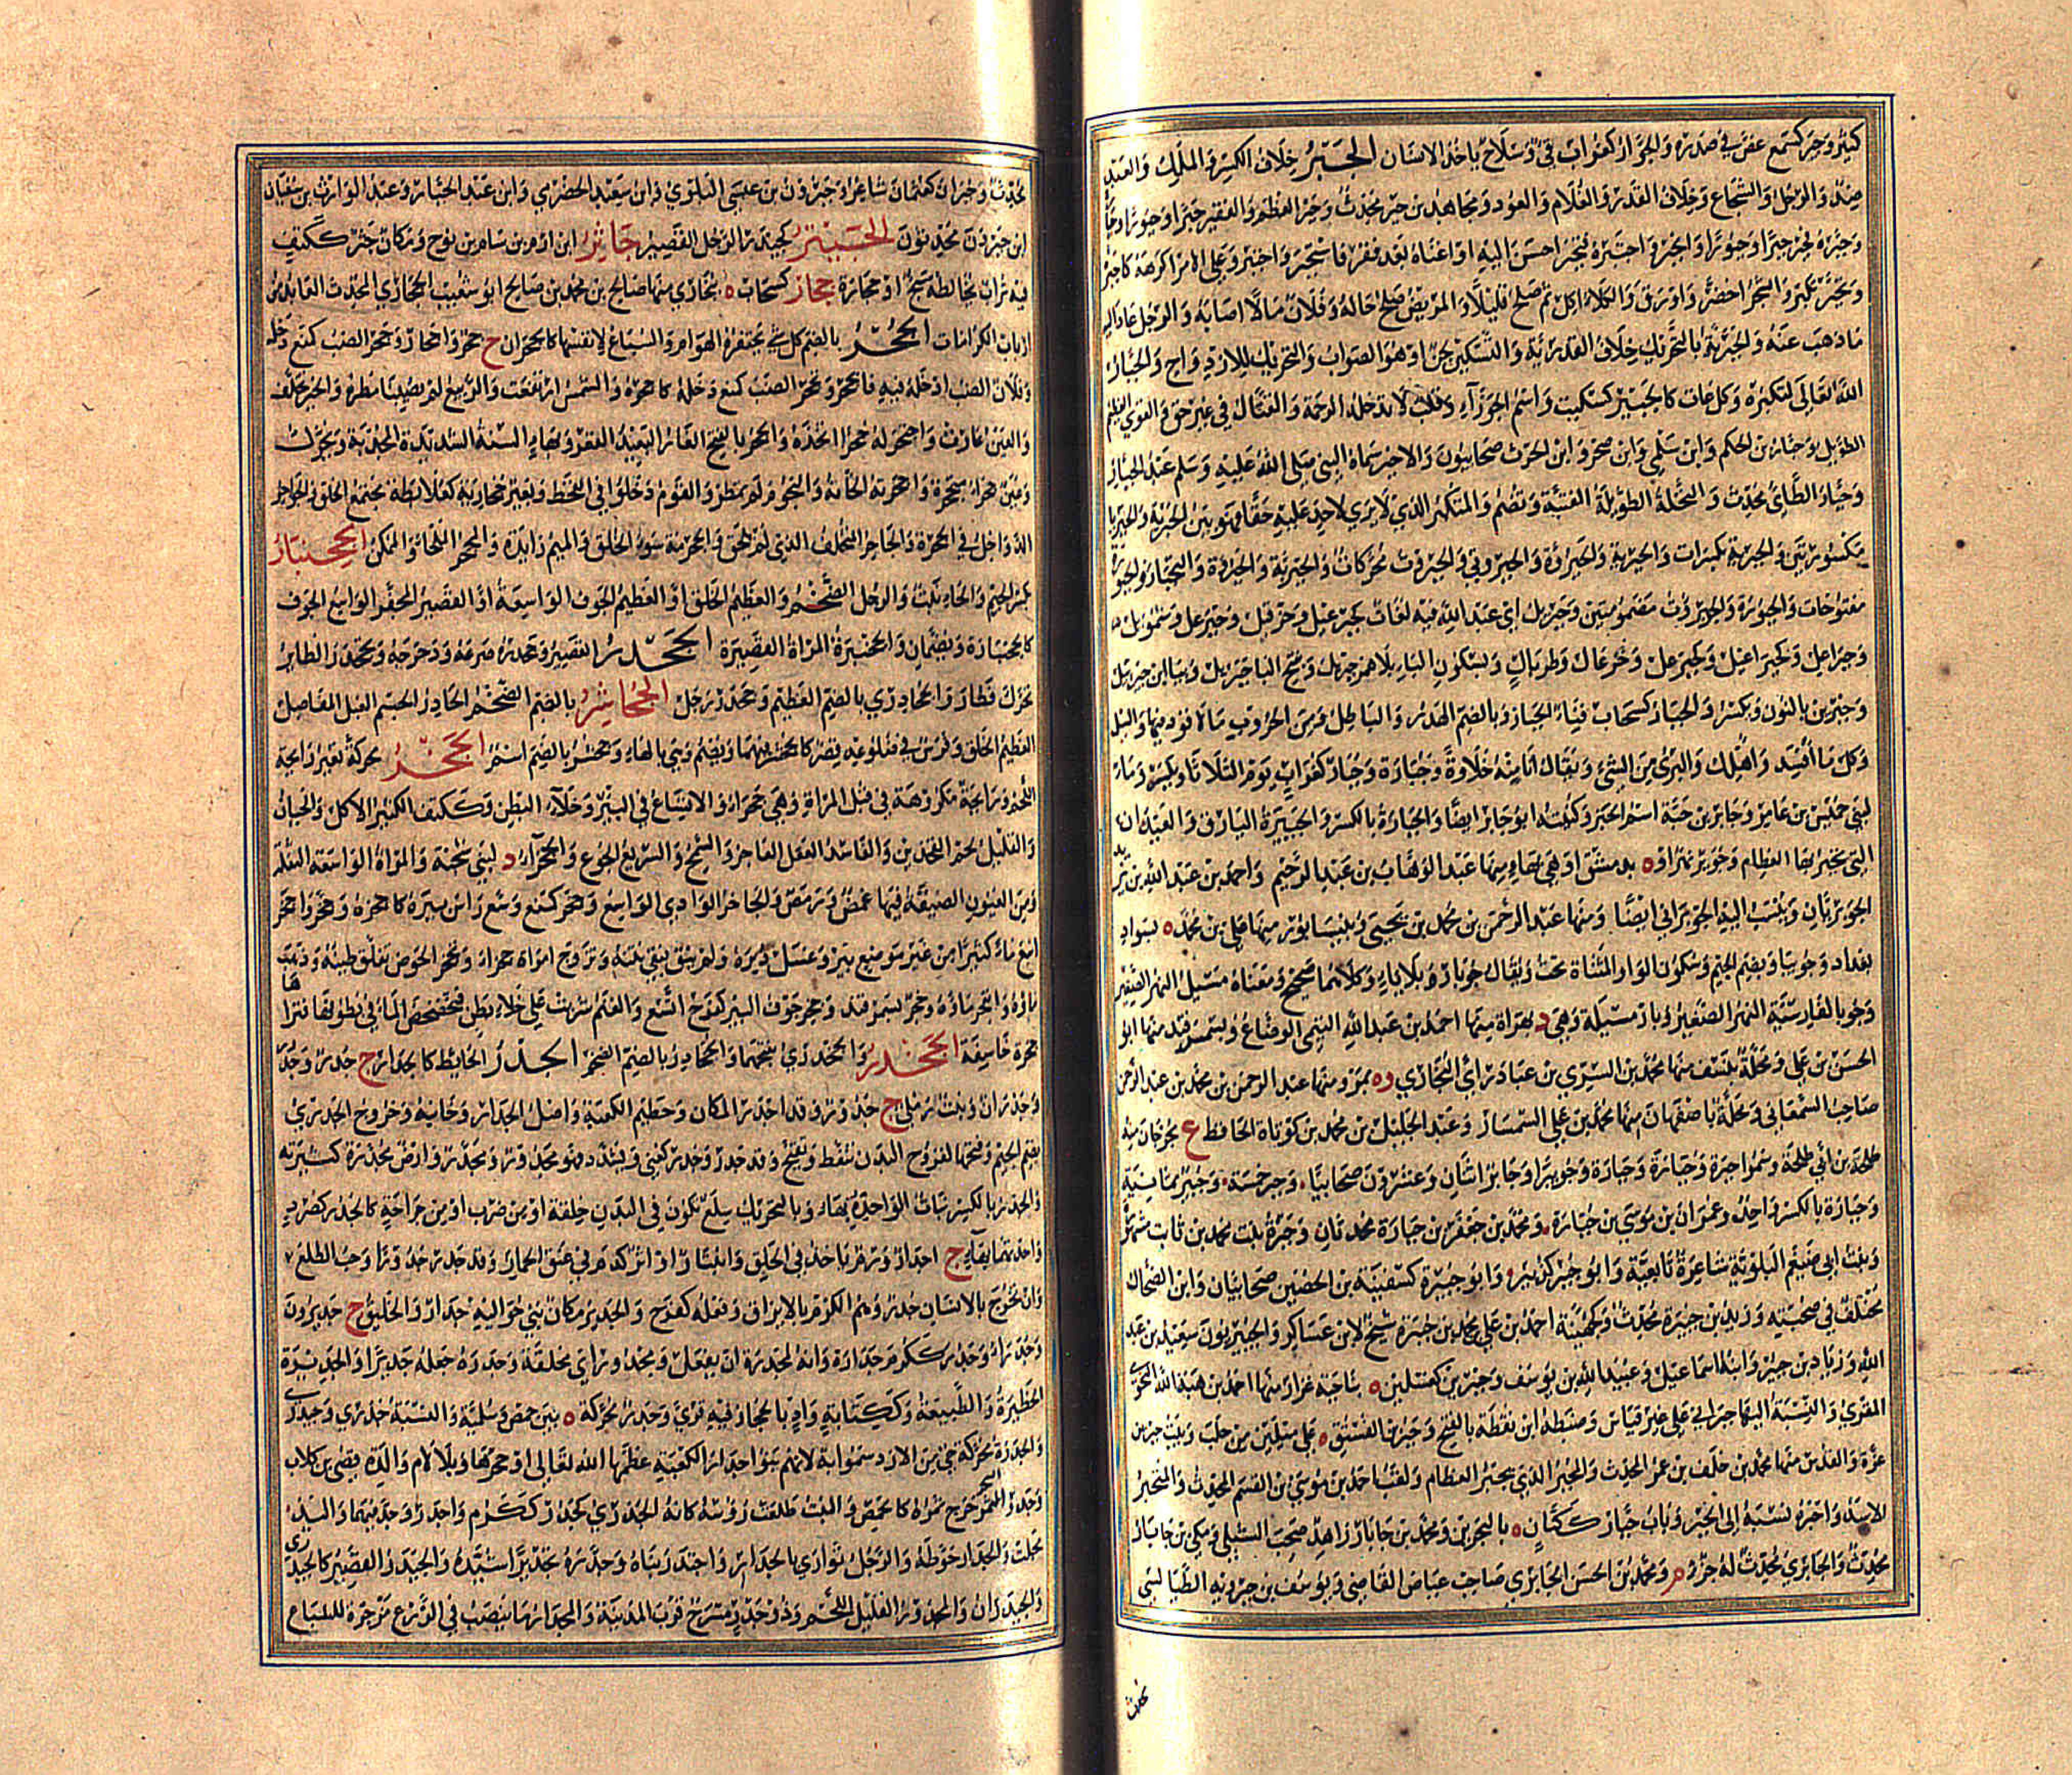 كثير وجر كسمع غص في صدره والجؤار كغراب قئ وسلاح ياخذ الانسان الجبر خلاف الكسر والملك والعبد
ضد والرجل والشجاع وخلاف القدر والغلام والعود ومجاهد بن جبر محدث وجبر العظم والفقير جبرا وجبورا وجبارة
وجبره فجبر جبرا وجبورا وانجبر واجتبره فتجبر احسن اليه او اغناه بعد فقر فاستجبر واجتبر وعلى الامر اكرهه كاجبره
وتجبر تكبر والشجر اخضر واورق والكلا اكل ثم صلح قليلا والمريض صلح حاله وفلان مالا اصابه والرجل عاد اليه
ما ذهب عنه والجبرية بالتحريك خلاف القدرية والتسكين لحن او هو الصواب والتحريك للازدواج والجبار
الله تعالى لتكبره وكل عات كالجبير كسكيت واسم الجوزاء وقلب لا تدخله الرحمة والقتال في غير حق والعظيم القوي
الطويل وجبار بن الحكم وابن سلمي وابن صخر وابن الحرث صحابيون والاخير سماه النبي صلى الله عليه وسلم عبد الجبار
وجبار الطائي محدث والنخلة الطويلة الفتية وتضم والمتكبر الذي لا يري لاحد عليه حقا فهو بين الجبرية والجبرياء
مكسورتين والجبرية بكسرات والجبرية والجبروة والجبروتي والجبروت محركات والجبرية والجبروة والتجبار والجبورة
مفتوحات والجبورة والجبروت مضمومتين وجبريل اي عبد الله فيه لغات كجبرعيل وحزقيل وجبرعل وسمويل
وجبراعل وجبراعيل وجبرعل وخزعال وطربال وبسكون الياء بلا همز جبريل وفتح اليا جبريل وبيائين جبرييل
وجبرين بالنون ويكسر والجبار كسحاب فناء الجبان وبالضم الهدر والباطل ومن الحروب ما لا قود فيها والسيل
وكل ما افسد واهلك والبري من الشئ ويقال انا منه خلاوة وجبارة وجبار كغراب يوم الثلاثا ويكسر وماء
لبني حميس بن عامر وجابر بن حبة اسم الخبز وكنيته ابو جابر ايضا والجبارة بالكسر والجبيرة اليارق والعيدان
التي تجبر بها العظام وجوبر نهر او ه بدمشق او هي بهاء منها عبد الوهاب بن عبد الرحيم واحمد بن عبد الله بن يزيد
الجوبريان وينسب اليه الجوبراني ايضا ومنها عبد الرحمن بن محمد بن يحيى وه بنيسابور منها علي بن محمد ه بسواد
بغداد وجوبيار بضم الجيم وسكون الواو المثناة تحت ويقال جوبار ه بلا ياء وكلاهما صحيح ومعناه مسيل النهر الصغير
وجو بالفارسية النهر الصغير وبار مسيله وهي د بهراة منها احمد بن عبد الله التيمي الوضاع وبسمرقند منها ابو
الحسن بن علي ومحلة بنسف منها محمد بن السري بن عباد راي البخاري وه بمرو منها عبد الرحمن بن محمد بن عبد الرحمن
صاحب السمعاني ومحلة باصفهان منها محمد بن علي السمسار وعبد الجليل بن محمد بن كوتاه الحافظ ع بجرجان منه
طلحة بن ابي طلحة وسموا جبرة وجبارة وجبارة وجويبرا وجابر اثنان وعشرون صحابيا وجبر خمسة وجبير ثمانية
وجبارة بالكسر واحد وعمران بن موسى بن جبارة ومحمد بن جعفر بن جبارة محدثان وجبرة بنت محمد بن ثابت مشهورة
وبنت ابي ضيغم البلوية شاعرة تابعية وابو جبير كزبير وابو جبيرة كسفينة بن الحصين صحابيان وابن الضحاك
مختلف في صحبته وزيد بن جبيرة محدث وكجهينة احمد بن علي بن محمد بن جبيرة شيخ لابن عساكر والجبيريون سعيد بن عبد
الله وزياد بن جبير وابنه اسماعيل وعبيد الله بن يوسف وجبرين كغسلين ه بناحية عزاز منها احمد بن هبة الله النحوي
المقري والنسبة اليها جبراني على غير قياس وضبطه ابن نقطة بالفتح وجبرين الفستق ه على ميلين من حلب وبيت جبرين
بين غزة والقدس منها محمد بن خلف بن عمر المحدث والمجبر الذي يجبر العظام ولقب احمد بن موسى بن القسم المحدث والمتجبر
الاسد واجبره نسبه الى الجبر وباب جبار ككتان ه بالبحرين ومحمد بن جابار زاهد صحب الشبلي ومكي بن جابار
محدث والجابري محدث له جزء م ومحمد بن الحسن الجابري صاحب عياض القاضي ويوسف بن جبرويه الطيالسي
محدث
محدث وجبران كعثمان شاعر وجبرون بن عيسى البلوي وابن سعيد الحضرمي وابن عبد الجبار وعبد الوارث بن سفيان
ابن جبرون محدثون الجبيثر كجيدر الرجل القصير جاثر ابن ارم بن سام بن نوح ومكان جثر ككتف
فيه تراب يخالطه سبخ او حجارة ججار كسحاب ه ببخاري منها صالح بن محمد بن صالح ابو شعيب الججاري المحدث العابد من
ارباب الكرامات الجحر بالضم كل شئ يحتفره الهوام والسباع لانفسها كالجحران ح جحرة واجحار وجحر الضب كمنع دخله
وفلان الضب ادخله فيه فانجحر وتجحر الضب كمنع دخله كاجحره والشمس ارتفعت والربيع لم يصبنا مطره والخير تخلف
والعين غارت واجتحر له جحرا اتخذه والجحر بالفتح الغار البعيد القعر وبهاء السنة الشديدة المجدبة ويحرك
وعين جحراء متجحرة واجحرته الجأته والنجوم لم تمطر والقوم دخلوا في القحط وبعير جحارية كعلابطة مجتمع الخلق والجواحر
الدواخل في الجحرة والجاحر المتخلف الذي لم يلحق والجحرمة سوء الخلق والميم زائدة والمجحر الملجا والمكمن الجحنبار
بكسر الجيم والحاء نبت والرجل الضخم والعظيم الخلق او العظيم الجوف الواسعه او القصير المجفر الواسع الجوف
كالجحنبارة ويضمان والجحنبرة المراة القصيرة الجحدر القصير وجحدره صرعه ودحرجه وتجحدر الطائر
تحرك فطار والجحادري بالضم العظيم وجحدر رجل الجحاشر بالضم الضخم الحادر الجسم العبل المفاصل
العظيم الخلق وفرس في ضلوعه قصر كالجحشر فيهما ويضم وهي بالهاء وجحشر بالضم اسم الجخر محركة تغير رائحة
اللحم ورائحة مكروهة في قبل المراة وهي جخراء والاتساع في البئر وخلاء البطن وككتف الكثير الاكل والجبان
والقليل لحم الفخذين والفاسد العقل الفاجر والسمج والسريع الجوع والجخراء د لبني شجنة والمراة الواسعة التفلة
ومن العيون الضيقة فيها غمص ورمص والجاخر الوادي الواسع وجخر كمنع وسع راس بيره كاجخر وجخر واجخر
انبع ماء كثيرا من غير موضع بير وغسل دبره ولم ينق فبقي نتنه وتزوج امراة جخراء وتجخر الحوض تفلق طينه وذهب
ماؤه وانفجر ماؤه وجخر لسمرقند وجخر جوف البير كفرح اتسع والغنم شربت على خلاء بطن فتخضخض الماء في بطونها فتراها
جخرة خاسفة الجخدر والجخدري بفتحهما والجخادر بالضم الضخم الجدر الحايط كالجدار ج جدر وجدر
وجدران ونبت رملي ج جدور وقد اجدر المكان وحطيم الكعبة واصل الجدار وجانبه وخروج الجدري
بضم الجيم وفتحها لقروح البدن تنفط وتقيح وقد جدر وجدر كعني ويشدد فهو مجدور ومجدر وارض مجدرة كثيرته
والجدر بالكسر نبات الواحدة بهاء وبالتحريك سلع تكون في البدن خلقة او من ضرب او من جراحة كالجدر كصرد
واحدتهما بهاء ج اجدار وورم ياخذ في الحلق وانتبار او اثر كدم في عنق الحمار وقد جدر جدورا وحب الطلع
وان يخرج بالانسان جدر وهم الكرم بالايراق وفعله كفرح والجدير مكان بني حواليه جدار والخليق ج جديرون
وجدراء وجدر ككرم جدارة وانه لمجدرة ان يفعل ومجدور اي مخلقة وجدره جعله جديرا والجديرة
الحظيرة والطبيعة وككتابة واد بالحجاز فيه قري وجدر محركة ه بين حمص وسلمية والنسبة جدري وجيدري
والجدرة محركة حي من الازد سموا به لانهم بنوا جدار الكعبة عظمها الله تعالى او حجرها وبلا لام والدة قصي بن كلاب
وجدر الشجر خرج ثمره كالحمص والنبت طلعت رؤسه كانه الجدري كجدر ككرم واجدر وجدر فيهما واليد
مجلت والجدار حوطه والرجل تواري بالجدار واجتدر بناه وجدره تجديرا اشيده والجيدر القصير كالجيدري
والجيدران والمجدور القليل اللحم وذو جدر مسرح قرب المدينة والمجدار شيء ينصب في الزرع مزجرة للسباع